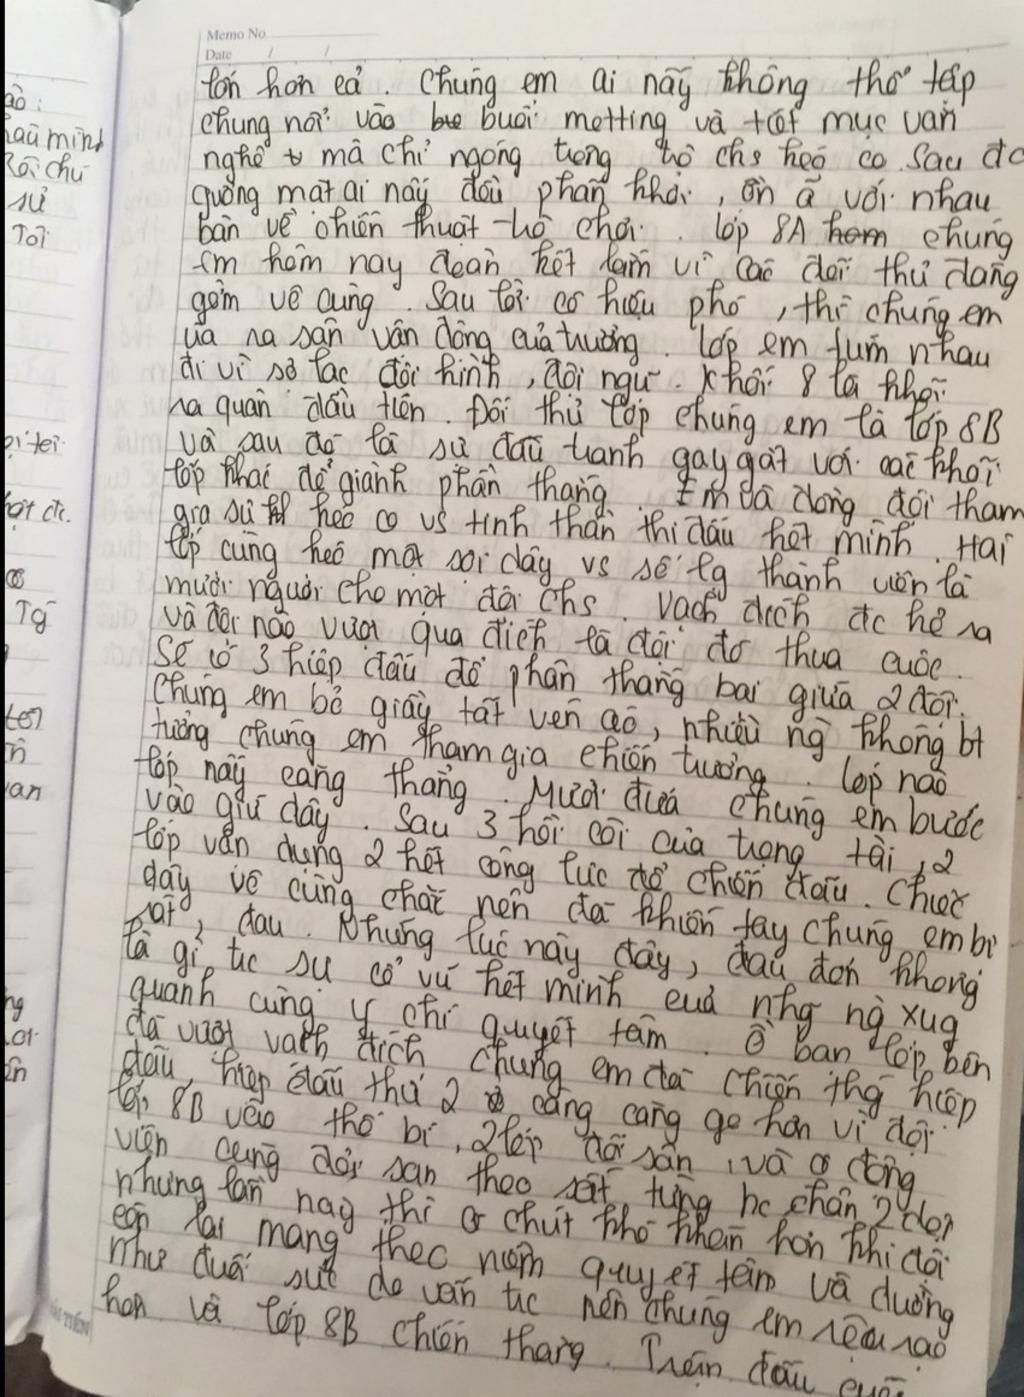 Memo No.
Date / /
lớn hơn cả. Chúng em ai nấy không thể tập
chung nổi vào buổi metting và tiết mục văn
nghệ mà chỉ ngóng trông trò chs kéo co. Sau đó
guơng mặt ai nấy đều phấn khởi, ồn ã với nhau
bàn về chiến thuật trò chơi. lớp 8A chúng
em hôm nay đoàn kết lắm vì các đối thủ đáng
gờm vô cùng. Sau lời cô hiệu phó, thì chúng em
ùa ra sân vân động của trường. lớp em túm nhau
đi vì sợ lạc đội hình, đội ngũ. Khối 8 là khối
ra quân đầu tiên. Đối thủ lớp chúng em là lớp 8B
và sau đó là sự đấu tranh gay gắt với các khối
lớp khác để giành phần thắng. Em và đồng đội tham
gia sự kéo co vs tinh thần thi đấu hết mình. Hai
lớp cùng kéo một sợi dây vs số lg thành viên là
mười người cho một đội chs. Vạch đích đc kẻ ra
và đội nào vượt qua đích là đội đó thua cuộc.
Sẽ có 3 hiệp đấu để phân thắng bại giữa 2 đội.
Chúng em bỏ giầy tất ven áo, nhiều ng không bt
tưởng chúng em tham gia chiến trường. lớp nào
lớp nấy căng thẳng. Mười đứa chúng em bước
vào giữ dây. Sau 3 hồi còi của trọng tài, 2
lớp vận dụng 2 hết công lực để chiến đấu. Chiếc
dây vô cùng chắc nên đã khiến tay chúng em bị
rát, đau. Nhưng lúc này đây, đau đớn không
là gì, tc sự cổ vũ hết mình của nhg ng xug
quanh cùng ý chí quyết tâm. Ồ bạn lớp bên
đã vượt vạch đích chúng em đã chiến thg hiệp
đầu, hiệp đấu thứ 2 càng căng go hơn vì đội
lớp 8B vào thế bí, 2 lớp đổi sân, và cổ động
viên cũng đổi sân theo sát từng bc chân 2 đội
nhưng lần này thì có chút khó khăn hơn khi đội
bạn lại mang theo niềm quyết tâm và dường
như đuối sức do ván tc nên chúng em rệu rạo
hơn và lớp 8B chiến thắng. Trận đấu cuối